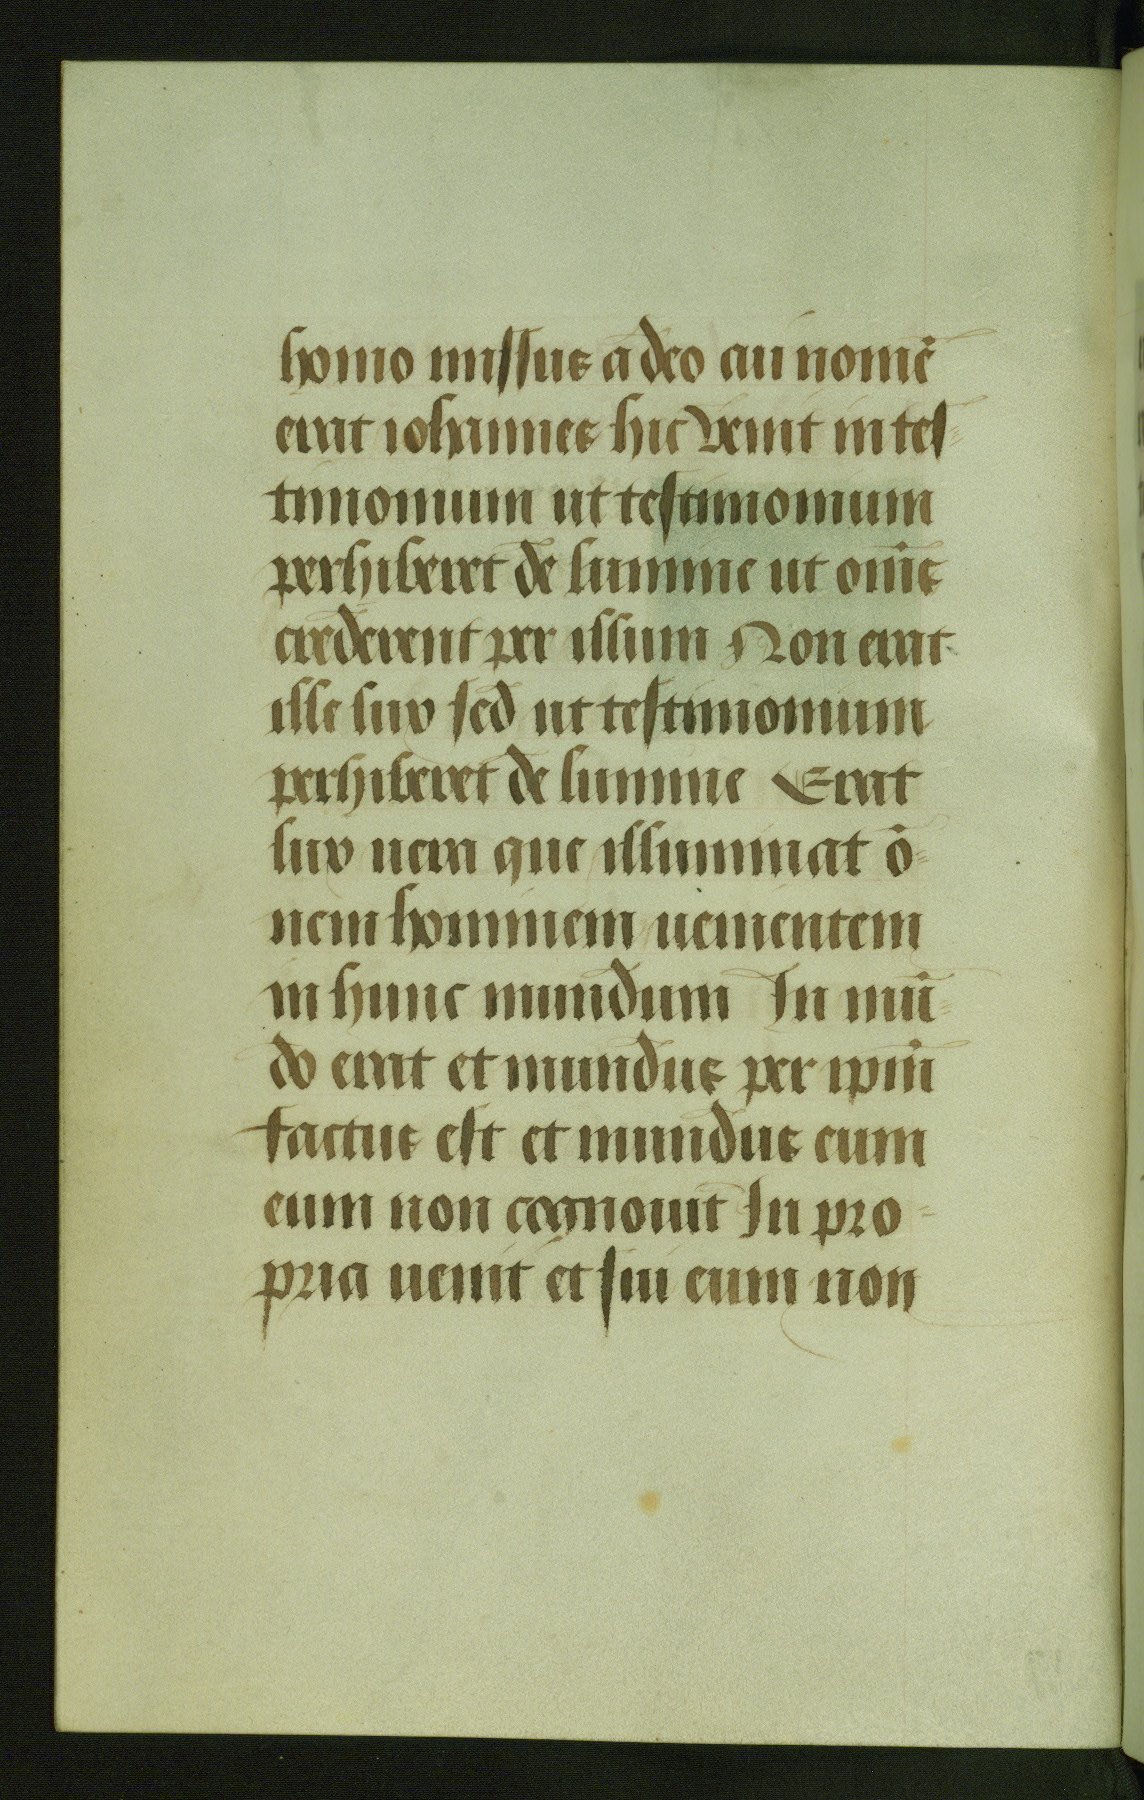 homo missus a deo cui nomē
erat iohannes hic venit in tes=
timonium ut testimonium
perhiberet de lumine ut om̄s
crederent per illum Non erat
ille lux sed ut testimonium
perhiberet de lumine Erat
lux uera que illuminat ō=
nem hominem uenientem
in hunc mundum In mū=
do erat et mundus per ipm̄
factus est et mundus eum
eum non cognouit In pro=
pria uenit et sui eum non